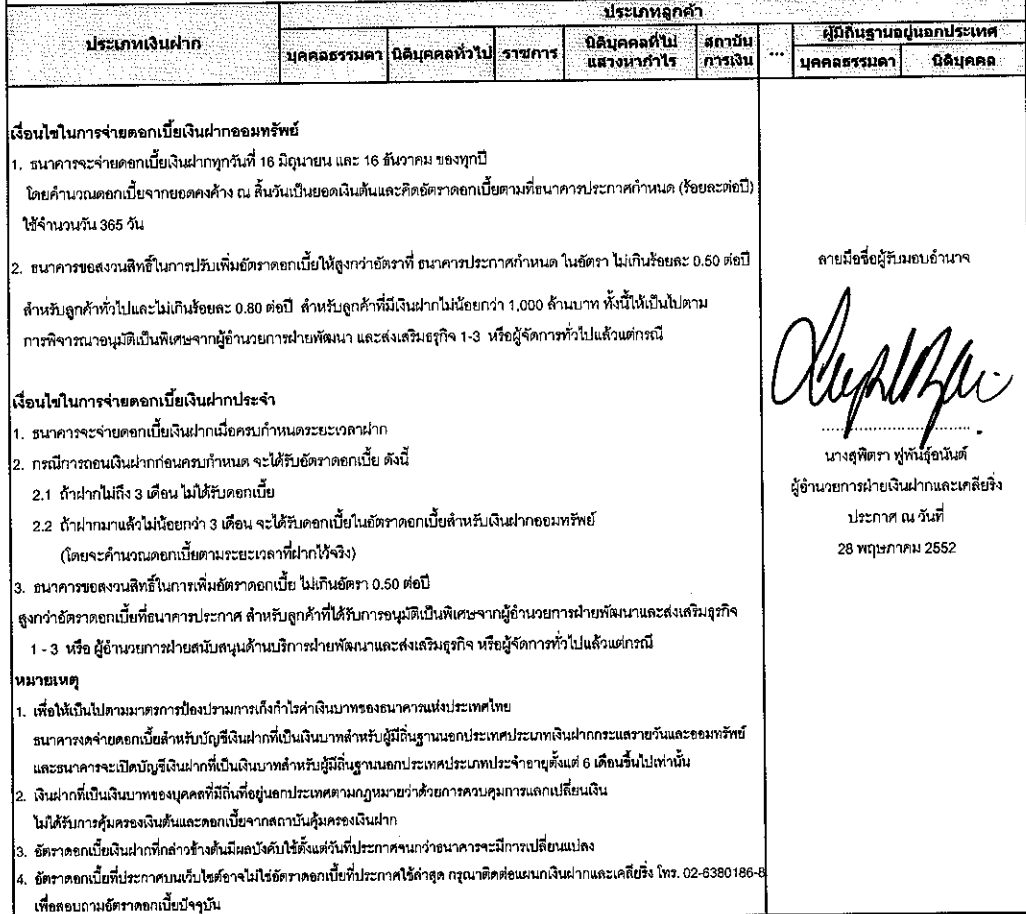 ประเภทเงินฝาก
ประเภทลูกค้า
บุคคลธรรมดา
นิติบุคคลทั่วไป
ราชการ
นิติบุคคลที่ไม่
แสวงหากำไร
สถาบัน
การเงิน
...
ผู้มีถิ่นฐานอยู่นอกประเทศ
บุคคลธรรมดา
นิติบุคคล
เงื่อนไขในการจ่ายดอกเบี้ยเงินฝากออมทรัพย์
1. ธนาคารจะจ่ายดอกเบี้ยเงินฝากทุกวันที่ 16 มิถุนายน และ 16 ธันวาคม ของทุกปี
โดยคำนวณดอกเบี้ยจากยอดคงค้าง ณ สิ้นวันเป็นยอดเงินต้นและคิดอัตราดอกเบี้ยตามที่ธนาคารประกาศกำหนด (ร้อยละต่อปี)
ใช้จำนวนวัน 365 วัน
2. ธนาคารขอสงวนสิทธิ์ในการปรับเพิ่มอัตราดอกเบี้ยให้สูงกว่าอัตราที่ ธนาคารประกาศกำหนด ในอัตรา ไม่เกินร้อยละ 0.50 ต่อปี
สำหรับลูกค้าทั่วไปและไม่เกินร้อยละ 0.80 ต่อปี สำหรับลูกค้าที่มีเงินฝากไม่น้อยกว่า 1,000 ล้านบาท ทั้งนี้ให้เป็นไปตาม
การพิจารณาอนุมัติเป็นพิเศษจากผู้อำนวยการฝ่ายพัฒนา และส่งเสริมธุรกิจ 1-3 หรือผู้จัดการทั่วไปแล้วแต่กรณี
เงื่อนไขในการจ่ายดอกเบี้ยเงินฝากประจำ
1. ธนาคารจะจ่ายดอกเบี้ยเงินฝากเมื่อครบกำหนดระยะเวลาฝาก
2. กรณีการถอนเงินฝากก่อนครบกำหนด จะได้รับอัตราดอกเบี้ย ดังนี้
2.1 ถ้าฝากไม่ถึง 3 เดือน ไม่ได้รับดอกเบี้ย
2.2 ถ้าฝากมาแล้วไม่น้อยกว่า 3 เดือน จะได้รับดอกเบี้ยในอัตราดอกเบี้ยสำหรับเงินฝากออมทรัพย์
(โดยจะคำนวณดอกเบี้ยตามระยะเวลาที่ฝากไว้จริง)
3. ธนาคารขอสงวนสิทธิ์ในการเพิ่มอัตราดอกเบี้ย ไม่เกินอัตรา 0.50 ต่อปี
สูงกว่าอัตราดอกเบี้ยที่ธนาคารประกาศ สำหรับลูกค้าที่ได้รับการอนุมัติเป็นพิเศษจากผู้อำนวยการฝ่ายพัฒนาและส่งเสริมธุรกิจ
1 - 3 หรือ ผู้อำนวยการฝ่ายสนับสนุนด้านบริการฝ่ายพัฒนาและส่งเสริมธุรกิจ หรือผู้จัดการทั่วไปแล้วแต่กรณี
หมายเหตุ
1. เพื่อให้เป็นไปตามมาตรการป้องปรามการเก็งกำไรค่าเงินบาทของธนาคารแห่งประเทศไทย
ธนาคารงดจ่ายดอกเบี้ยสำหรับบัญชีเงินฝากที่เป็นเงินบาทสำหรับผู้มีถิ่นฐานนอกประเทศประเภทเงินฝากกระแสรายวันและออมทรัพย์
และธนาคารจะเปิดบัญชีเงินฝากที่เป็นเงินบาทสำหรับผู้มีถิ่นฐานนอกประเทศประเภทประจำอายุตั้งแต่ 6 เดือนขึ้นไปเท่านั้น
2. เงินฝากที่เป็นเงินบาทของบุคคลที่มีถิ่นที่อยู่นอกประเทศตามกฎหมายว่าด้วยการควบคุมการแลกเปลี่ยนเงิน
ไม่ได้รับการคุ้มครองเงินต้นและดอกเบี้ยจากสถาบันคุ้มครองเงินฝาก
3. อัตราดอกเบี้ยเงินฝากที่กล่าวข้างต้นมีผลบังคับใช้ตั้งแต่วันที่ประกาศจนกว่าธนาคารจะมีการเปลี่ยนแปลง
4. อัตราดอกเบี้ยที่ประกาศบนเว็บไซต์อาจไม่ใช่อัตราดอกเบี้ยที่ประกาศใช้ล่าสุด กรุณาติดต่อแผนกเงินฝากและเคลียริ่ง โทร. 02-6380186-8
เพื่อสอบถามอัตราดอกเบี้ยปัจจุบัน
ลายมือชื่อผู้รับมอบอำนาจ
นางสุพิตรา ฟูพันธุ์อนันต์
ผู้อำนวยการฝ่ายเงินฝากและเคลียริ่ง
ประกาศ ณ วันที่
28 พฤษภาคม 2552